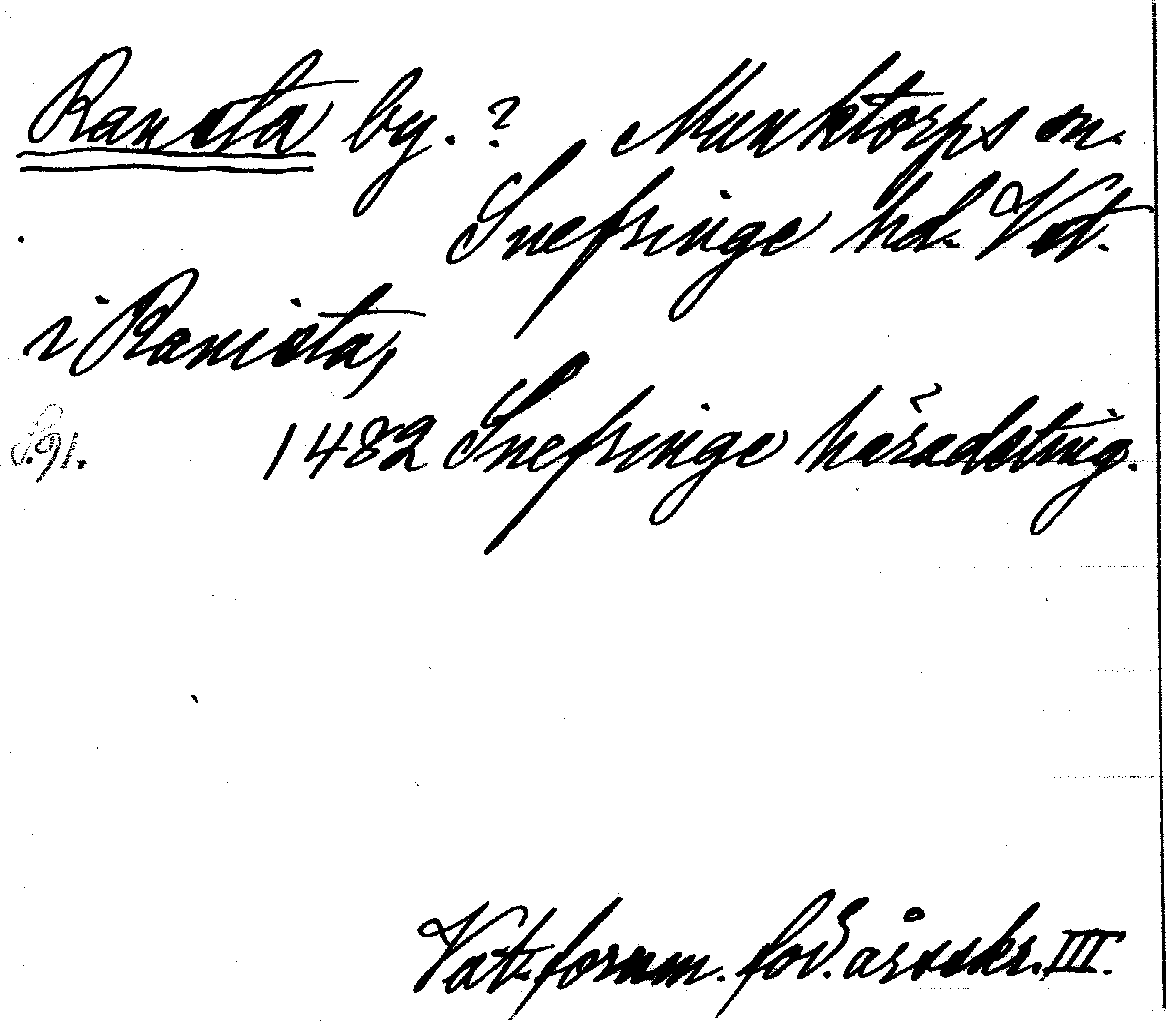 Ransta by.? Munktorps sn.
Snefringe hd. Vstm.
i Ranista,
S. 91. 1482 Snefringe häradsting.
Västm. fornm. för. årsskr. III.